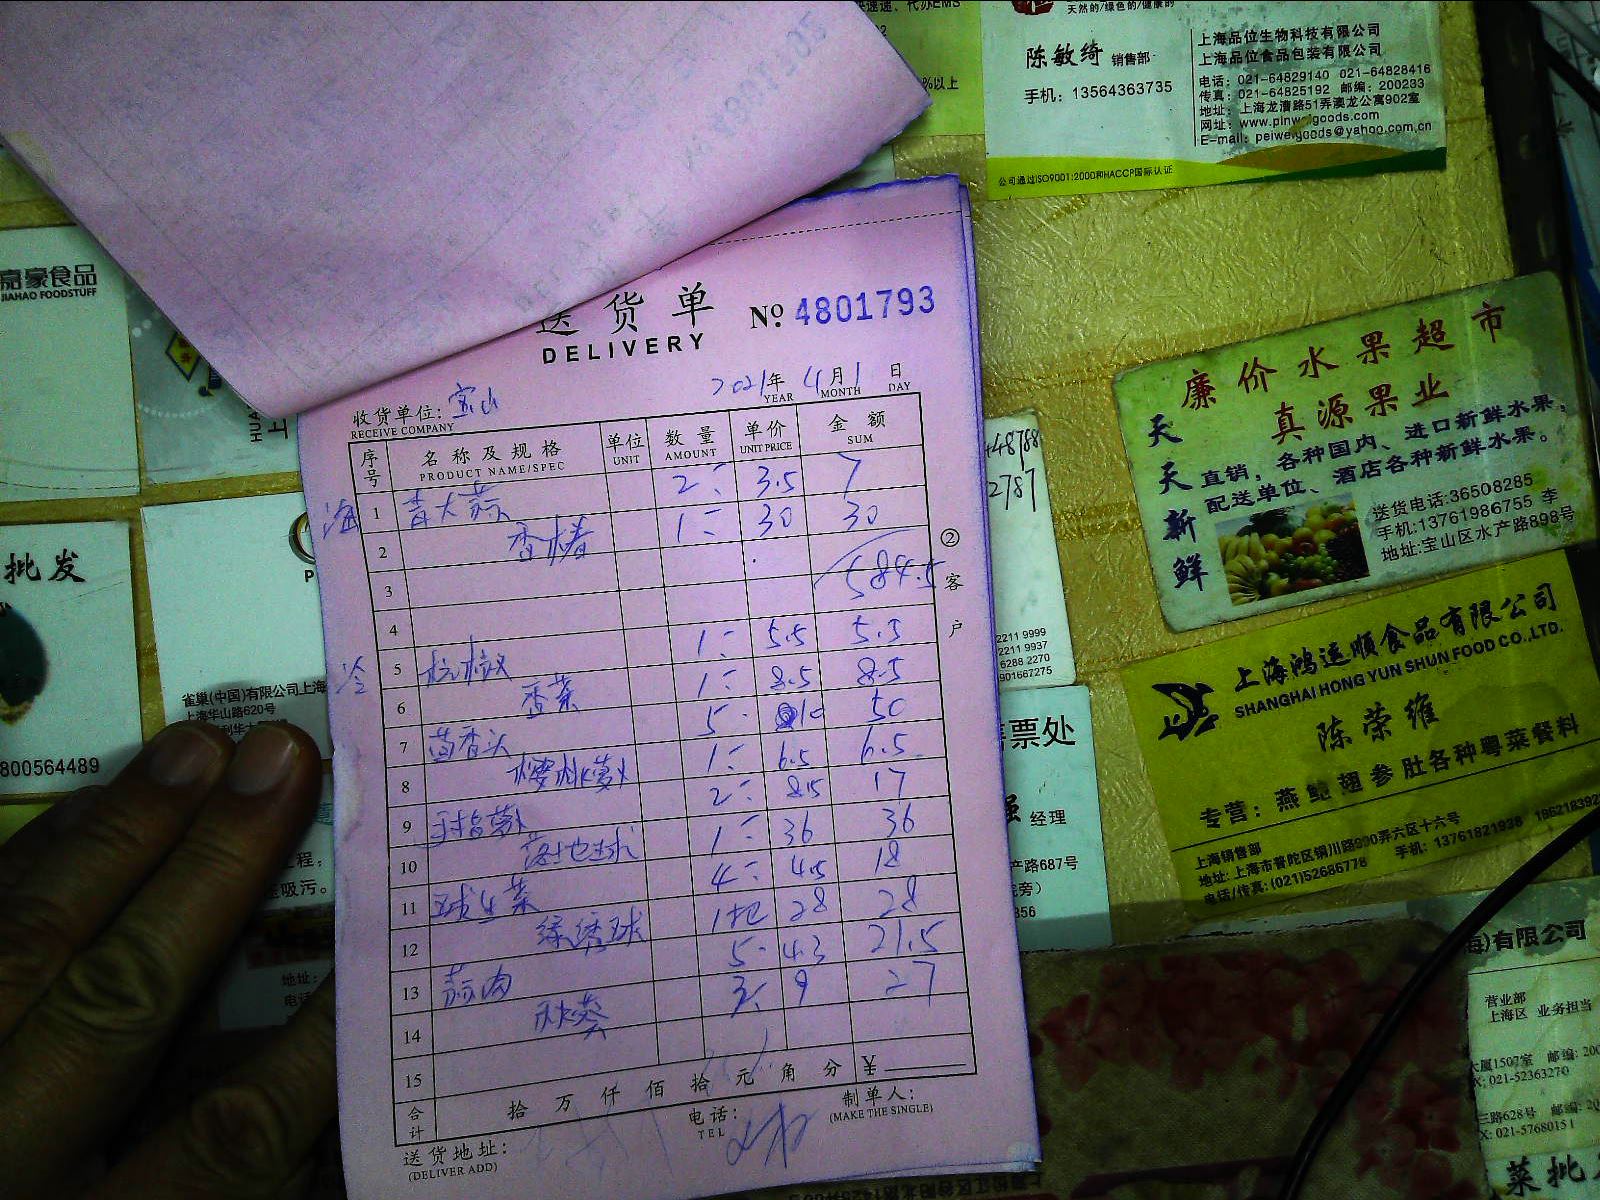 送货单
DELIVERY
No 4801793
2021年 4月 1日
YEAR MONTH DAY
收货单位: 宝山
RECEIVE COMPANY
序号 名称及规格 单位 数量 单价 金额
PRODUCT NAME/SPEC UNIT AMOUNT UNIT PRICE SUM
海 1 青大蒜 2 3.5 7
2 香椿 1 30 30
3 584.5
4
冷 5 1 5.5 5.5
6 香菜 1 8.5 8.5
7 茴香头 5 10 50
8 樱桃萝卜 1 6.5 6.5
9 手指萝卜 2 8.5 17
10 1 36 36
11 球生菜 4 4.5 18
12 绿绣球 1把 28 28
13 蒜肉 5 4.3 21.5
14 秋葵 3 9 27
15
合计 拾 万 仟 佰 拾 元 角 分 ¥
送货地址: 电话: 制单人:
(DELIVER ADD) TEL (MAKE THE SINGLE)
②客户
天然的/绿色的/健康的
陈敏绮 销售部
手机: 13564363735
上海品位生物科技有限公司
上海品位食品包装有限公司
电话: 021-64829140 021-64828416
传真: 021-64825192 邮编: 200233
地址: 上海龙漕路51弄澳龙公寓902室
网址: www.pinweigoods.com
E-mail: peiweigoods@yahoo.com.cn
公司通过ISO9001:2000和HACCP国际认证
代办EMS
%以上
嘉豪食品
JIAHAO FOODSTUFF
批发
800564489
雀巢(中国)有限公司上海
上海华山路620号
工程,
吸污。
地址:
48788
2787
2211 9999
2211 9937
6288 2270
901667275
售票处
经理
产路687号
廉价水果超市
真源果业
天天新鲜
直销,各种国内、进口新鲜水果,
配送单位、酒店各种新鲜水果。
送货电话:36508285
手机:13761986755 李
地址:宝山区水产路898号
上海鸿运顺食品有限公司
SHANGHAI HONG YUN SHUN FOOD CO.,LTD.
陈荣维
专营: 燕鲍翅参肚各种粤菜餐料
上海销售部
地址: 上海市普陀区铜川路990弄六区十六号
电话/传真: (021)52686778 手机: 13761821938
海)有限公司
营业部
上海区 业务担当
大厦1507室 邮编: 200
021-52363270
三路628号 邮编: 20
021-57680151
菜批